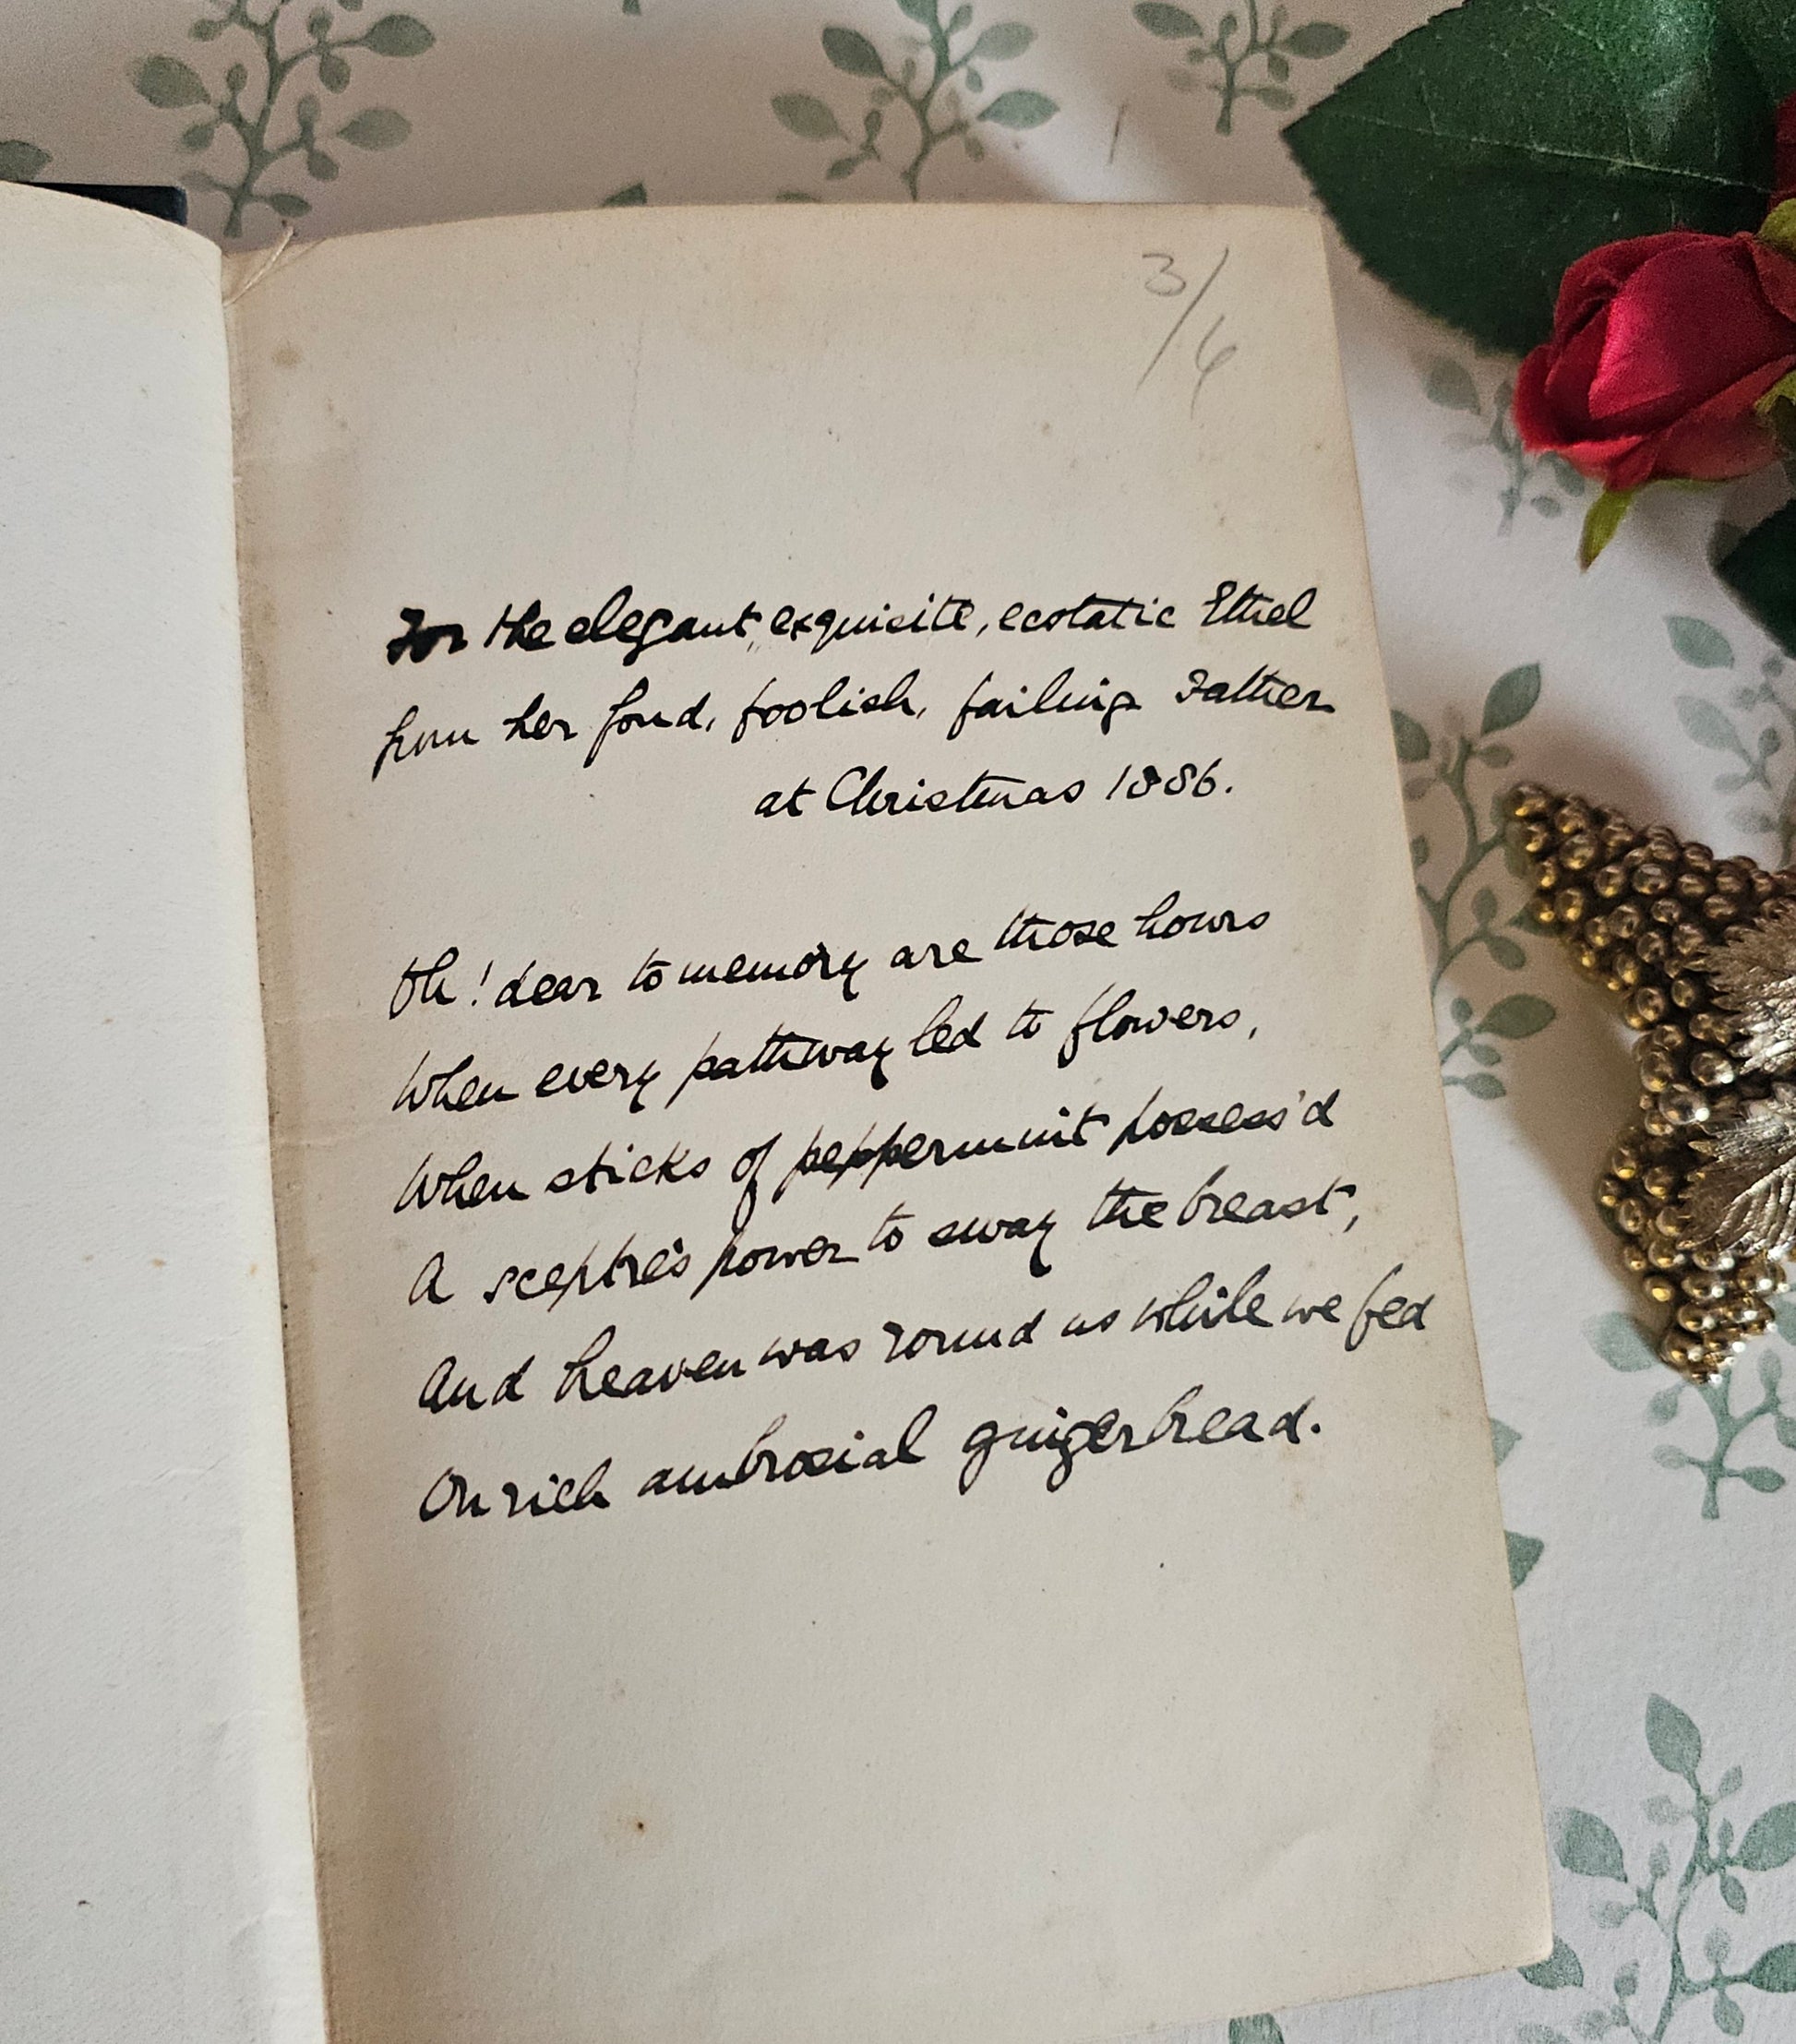 3/6
For the elegant, exquisite, ecstatic Ethel
from her fond, foolish, failing Father
at Christmas 1886.
Oh! dear to memory are those hours
When every pathway led to flowers,
When sticks of peppermint possess'd
A sceptre's power to sway the breast,
And heaven was round us while we fed
On rich ambrosial gingerbread.